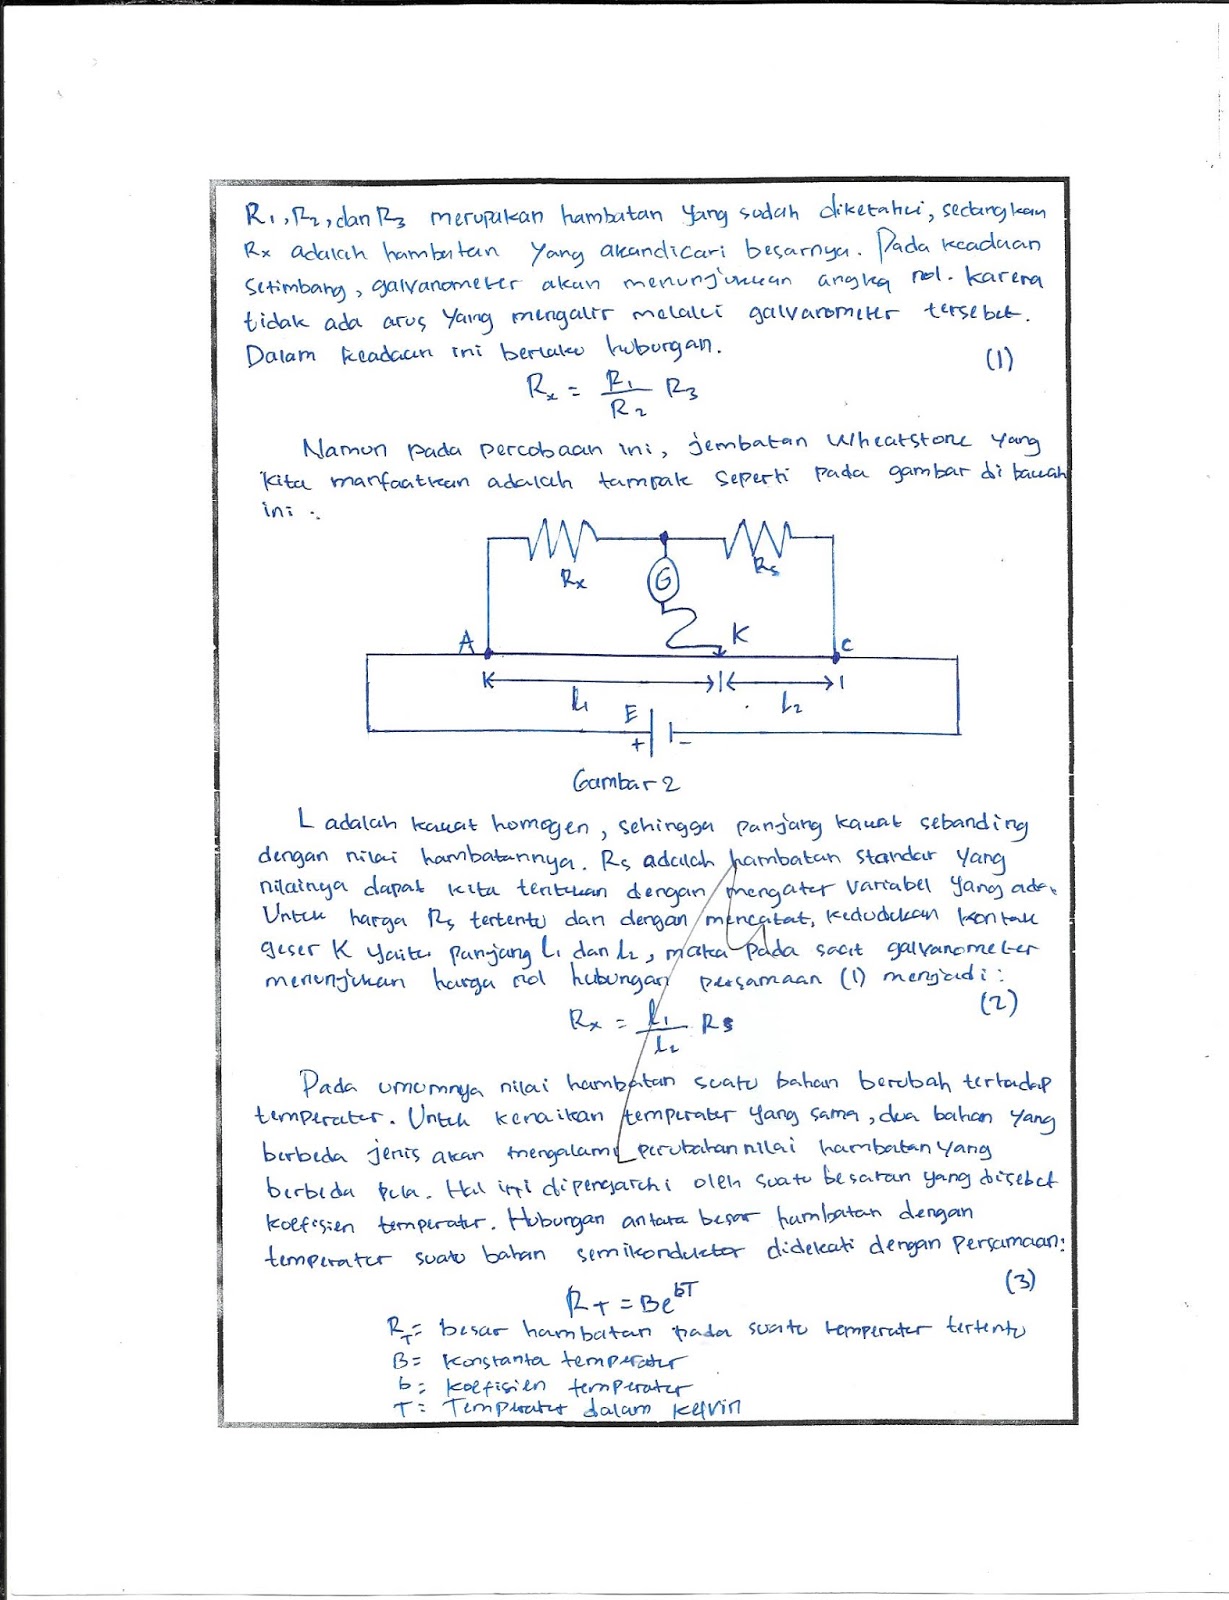 R₁, R₂, dan R₃ merupakan hambatan yang sudah diketahui, sedangkan
Rx adalah hambatan yang akan dicari besarnya. Pada keadaan
setimbang, galvanometer akan menunjukkan angka nol. karena
tidak ada arus yang mengalir melalui galvanometer tersebut.
Dalam keadaan ini berlaku hubungan.
(1)
Rx = R₁/R₂ R₃
Namun pada percobaan ini, jembatan Wheatstone yang
kita manfaatkan adalah tampak seperti pada gambar di bawah
ini :
Rx
G
Rs
A
K
C
L₁
L₂
E
+
-
Gambar 2
L adalah kawat homogen, sehingga panjang kawat sebanding
dengan nilai hambatannya. Rs adalah hambatan standar yang
nilainya dapat kita tentukan dengan mengatur variabel yang ada.
Untuk harga Rs tertentu dan dengan mencatat, kedudukan kontak
geser K yaitu panjang L₁ dan L₂, maka pada saat galvanometer
menunjukan harga nol hubungan persamaan (1) menjadi :
(2)
Rx = L₁/L₂ Rs
Pada umumnya nilai hambatan suatu bahan berubah terhadap
temperatur. Untuk kenaikan temperatur yang sama, dua bahan yang
berbeda jenis akan mengalami perubahan nilai hambatan yang
berbeda pula. Hal ini dipengaruhi oleh suatu besaran yang disebut
koefisien temperatur. Hubungan antara besar hambatan dengan
temperatur suatu bahan semikonduktor didekati dengan persamaan:
(3)
R_T = Be^bT
R_T = besar hambatan pada suatu temperatur tertentu
B = konstanta temperatur
b = koefisien temperatur
T = Temperatur dalam kelvin